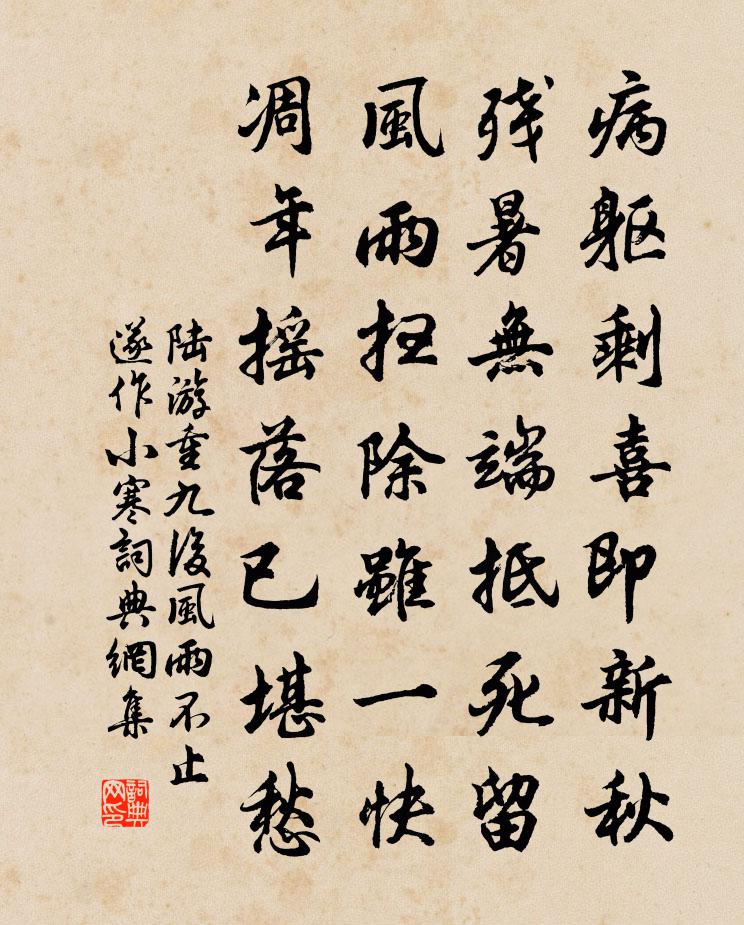 病躯剩喜即新秋
残暑無端抵死留
風雨扫除雖一快
凋年摇落已堪愁
陆游重九後風雨不止
遂作小寒詞典網集
詞典网印